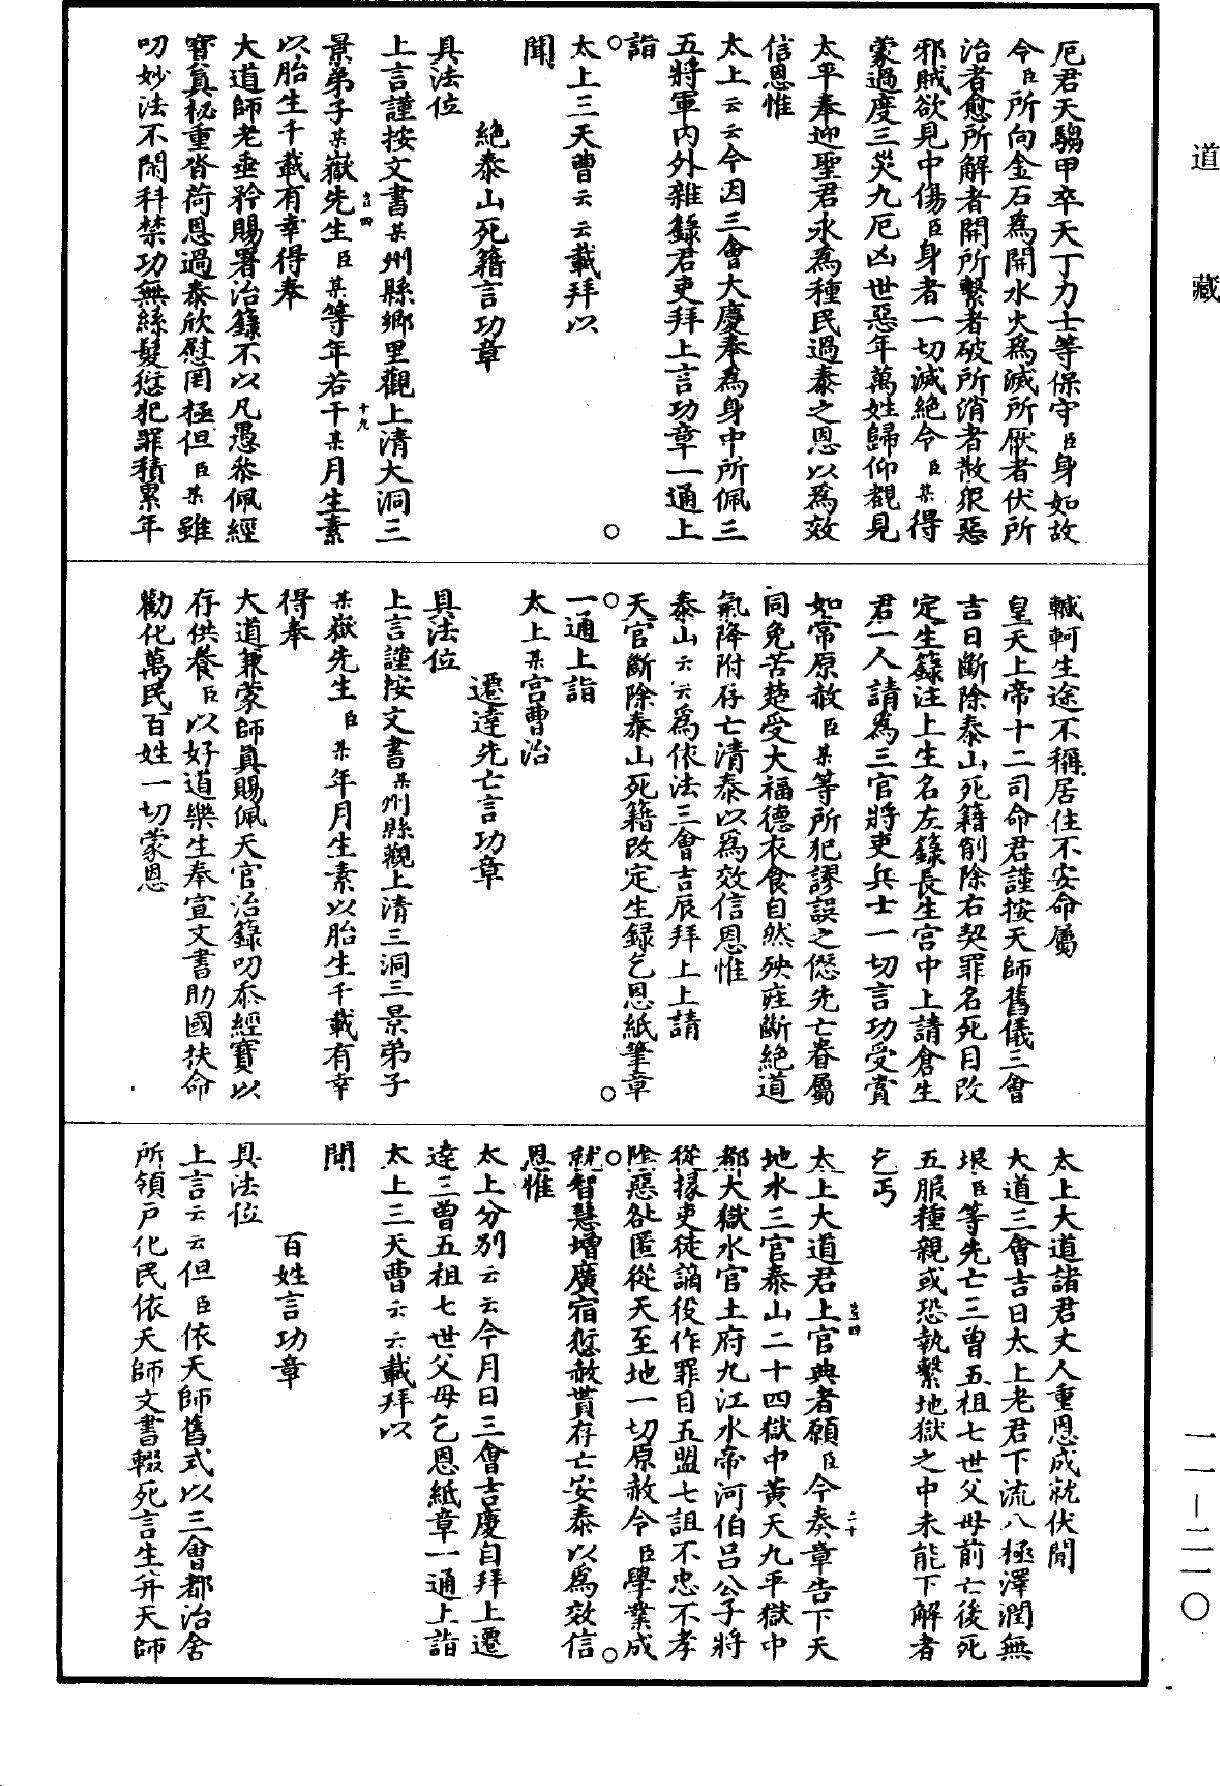 道藏
厄君天騶甲卒天丁力士等保守臣身如故
今臣所向金石為開水火為滅所厭者伏所
治者愈所解者開所繫者破所消者散衆惡
邪賊欲見中傷臣身者一切滅絕令臣某得
蒙過度三災九厄凶世惡年萬姓歸仰覩見
太平奉迎聖君永為種民過泰之恩以為效
信恩惟
太上云云今因三會大慶奉為身中所佩三
五將軍內外雜錄君吏拜上言功章一通上
詣
太上三天曹云云載拜以
聞
絕泰山死籍言功章
具法位
上言謹按文書某州縣鄉里觀上清大洞三
景弟子某嶽先生臣某等年若干某月生素
以胎生千載有幸得奉
大道師老垂矜賜署治籙不以凡愚忝佩經
寶真秘重沓荷恩過泰欣慰罔極但臣某雖
叨妙法不閑科禁功無絲髮愆犯罪積累年
轗軻生途不稱居住不安命屬
皇天上帝十二司命君謹按天師舊儀三會
吉日斷除泰山死籍削除右契罪名死目改
定生籙注上生名左籙長生宮中上請倉生
君一人請為三官將吏兵士一切言功受賞
如常原赦臣某等所犯謬誤之愆先亡眷屬
同免苦楚受大福德衣食自然殃疰斷絕道
氣降附存亡清泰以為效信恩惟
泰山云云為依法三會吉辰拜上上請
天官斷除泰山死籍改定生録乞恩紙筆章
一通上詣
太上某宮曹治
遷達先亡言功章
具法位
上言謹按文書某州縣觀上清三洞三景弟子
某嶽先生臣某年月生素以胎生千載有幸
得奉
大道兼蒙師真賜佩天官治籙叨忝經寶以
存供養臣以好道樂生奉宣文書助國扶命
勸化萬民百姓一切蒙恩
太上大道諸君丈人重恩成就伏聞
大道三會吉日太上老君下流八極澤潤無
垠臣等先亡三曾五祖七世父母前亡後死
五服種親或恐執繫地獄之中未能下解者
乞丐
太上大道君上官典者願臣今奏章告下天
地水三官泰山二十四獄中黃天九平獄中
都大獄水官土府九江水帝河伯呂公子將
從掾吏徒謫役作罪目五盟七詛不忠不孝
陰惡咎匿從天至地一切原赦令臣學業成
就智慧增廣宿愆赦貰存亡安泰以為效信
恩惟
太上分別云云今月日三會吉慶自拜上遷
達三曾五祖七世父母乞恩紙章一通上詣
太上三天曹云云載拜以
聞
百姓言功章
具法位
上言云云但臣依天師舊式以三會都治舍
所領戶化民依天師文書輟死言生并天師
一一-二一〇